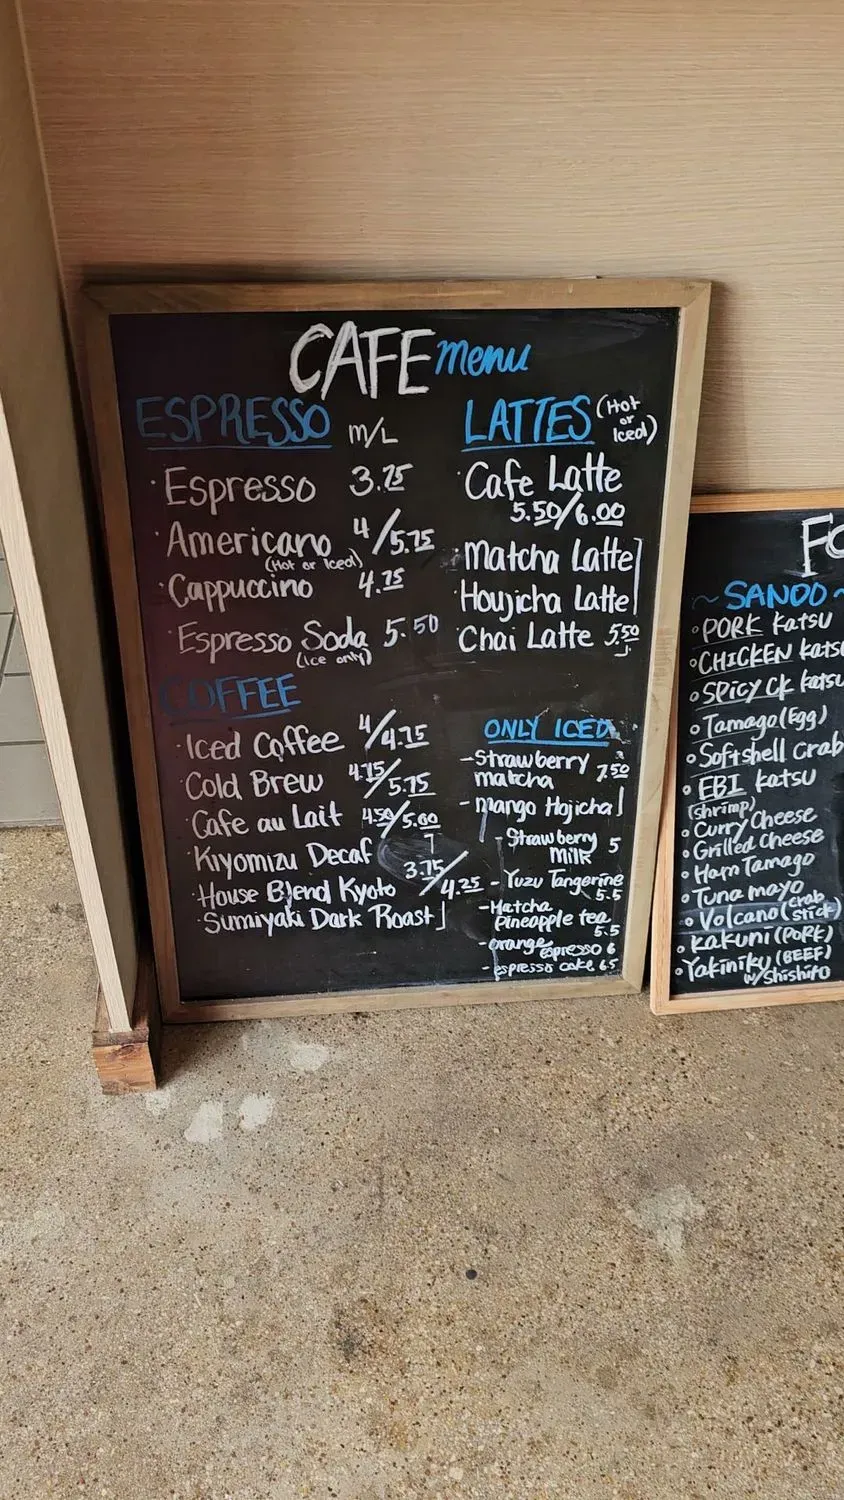 CAFE menu
ESPRESSO m/L
· Espresso 3.75
· Americano 4/5.75
(Hot or Iced)
· Cappuccino 4.75
· Espresso Soda 5.50
(ice only)
COFFEE
· Iced Coffee 4/4.75
· Cold Brew 4.75/5.75
· Cafe au Lait 4.50/5.00
· Kiyomizu Decaf
3.75/4.25
· House Blend Kyoto
· Sumiyaki Dark Roast
LATTES (Hot
or
Iced)
· Cafe Latte
5.50/6.00
· Matcha Latte
Houjicha Latte
Chai Latte 5.50
ONLY ICED
- Strawberry
matcha 7.50
- mango Hojicha
- Strawberry
Milk 5
- Yuzu Tangerine
5.5
- Matcha
Pineapple tea
5.5
- orange espresso 6
- espresso coke 6.5
FO
~ SANDO ~
• PORK Katsu
• CHICKEN Katsu
• SPICY CK Katsu
• Tamago (Egg)
• Softshell Crab
• EBI Katsu
(shrimp)
• Curry Cheese
• Grilled Cheese
• Ham Tamago
• Tuna mayo
• Volcano (Crab
Stick)
• Kakuni (PORK)
• Yakiniku (BEEF)
w/Shishito